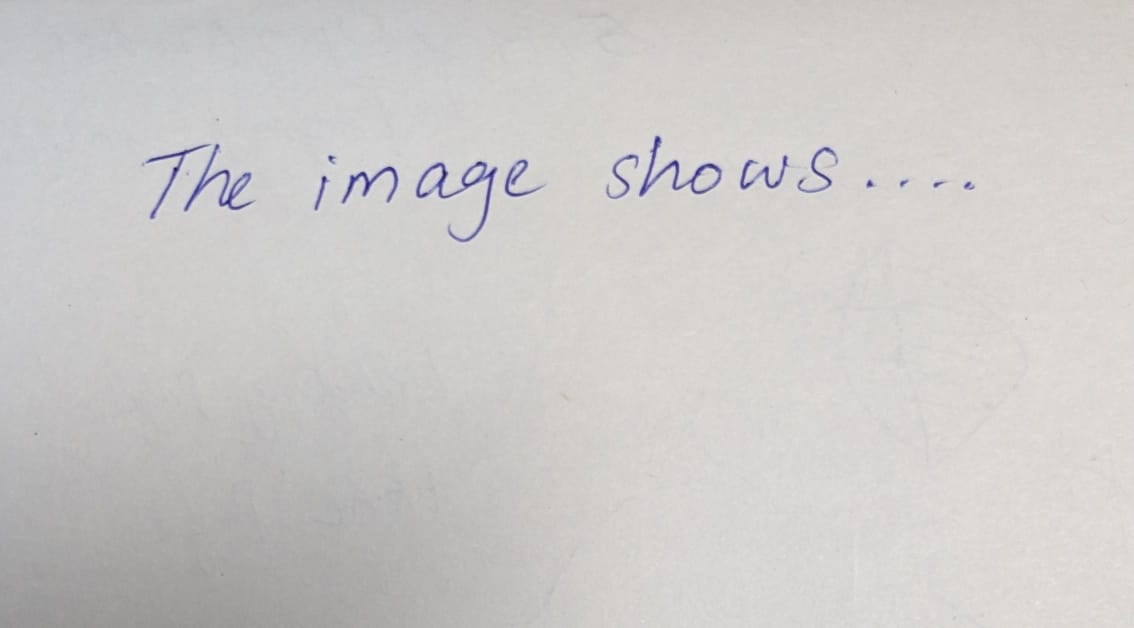 The image shows....